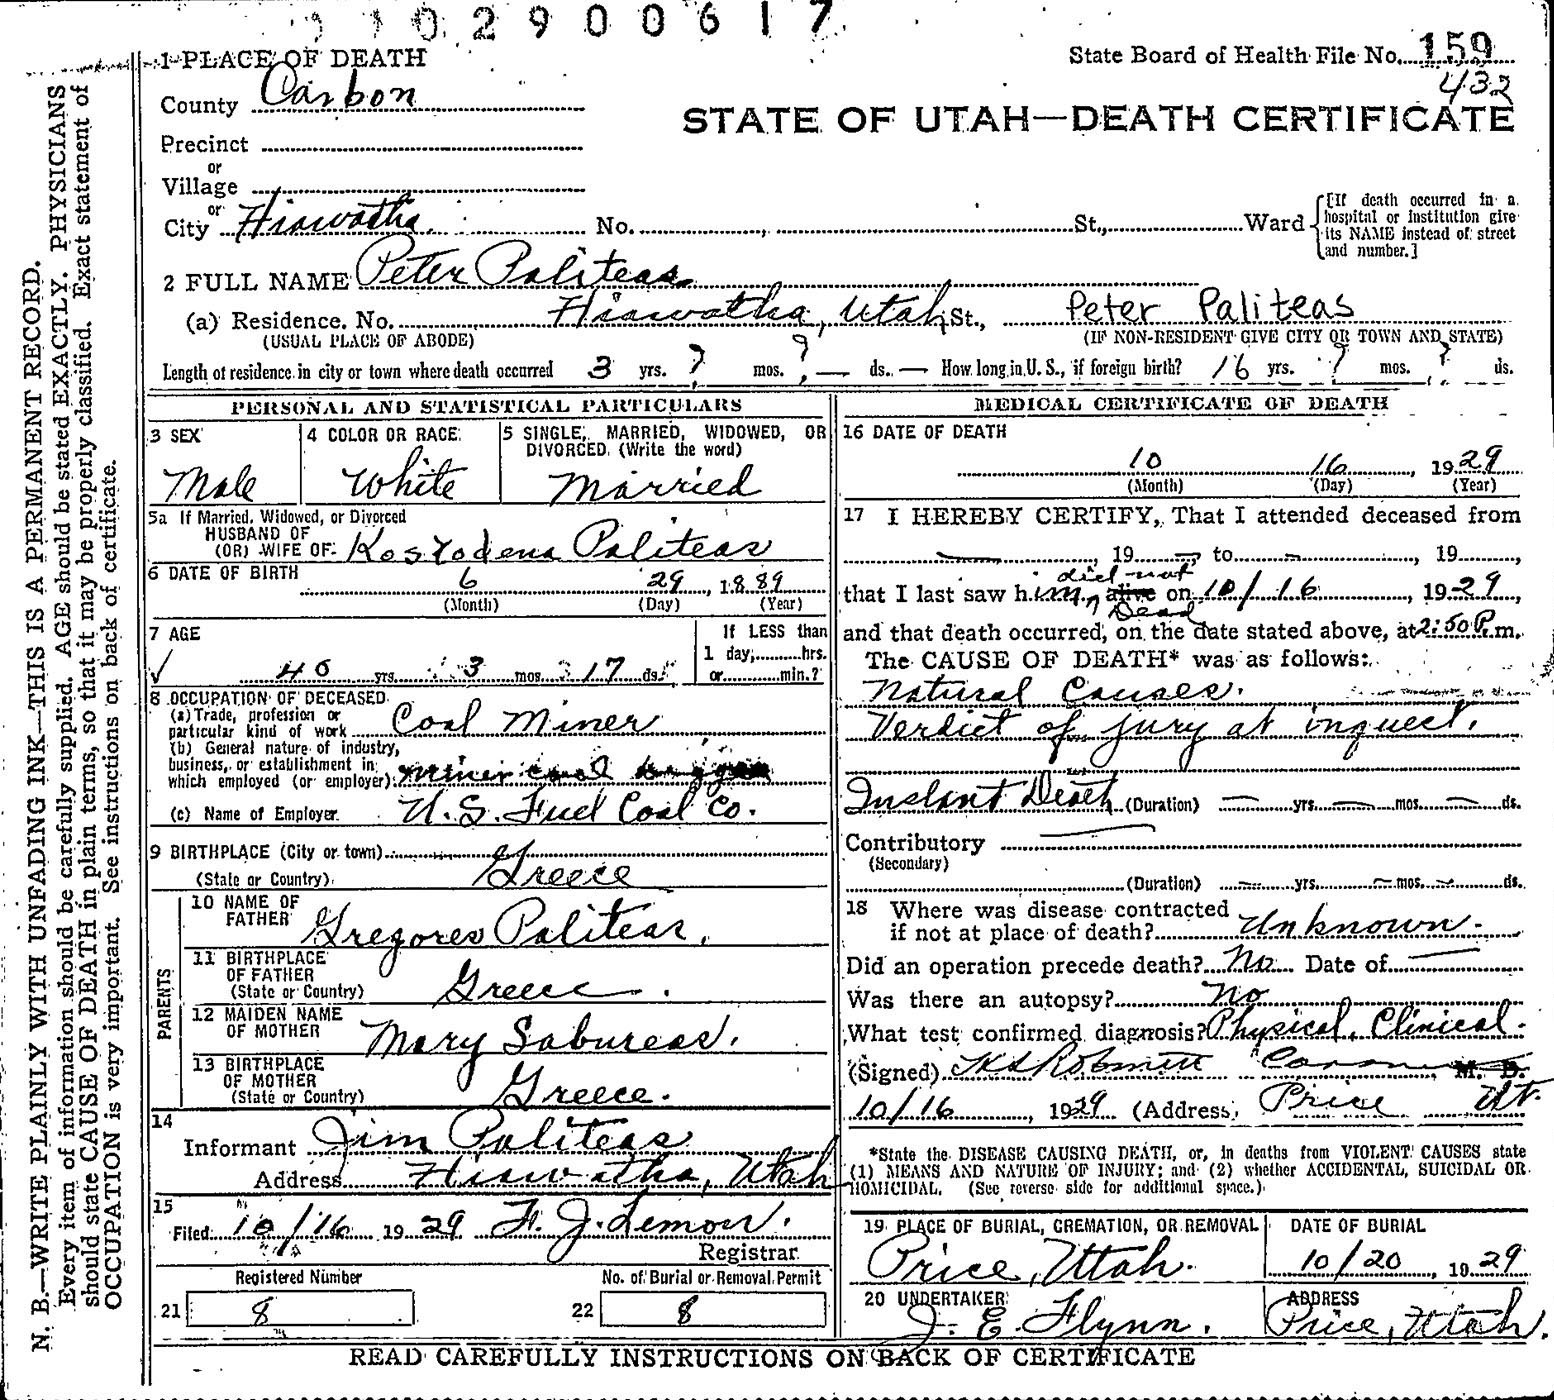 102900617
1 PLACE OF DEATH
State Board of Health File No. 159
432
County Carbon
STATE OF UTAH—DEATH CERTIFICATE
Precinct
or
Village
or
City Hiawatha No. St., Ward
[If death occurred in a hospital or institution give its NAME instead of street and number.]
2 FULL NAME Peter Paliteas
(a) Residence. No. Hiawatha, Utah St., Peter Paliteas
(USUAL PLACE OF ABODE) (IF NON-RESIDENT GIVE CITY OR TOWN AND STATE)
Length of residence in city or town where death occurred 3 yrs. ? mos. ? — ds. — How long in U. S., if foreign birth? 16 yrs. ? mos. ? ds.
PERSONAL AND STATISTICAL PARTICULARS
3 SEX
Male
4 COLOR OR RACE
White
5 SINGLE, MARRIED, WIDOWED, OR DIVORCED. (Write the word)
Married
5a If Married, Widowed, or Divorced
HUSBAND OF
(OR) WIFE OF Kostodena Paliteas
6 DATE OF BIRTH
6 29, 1889
(Month) (Day) (Year)
7 AGE
40 yrs. 3 mos. 17 ds.
If LESS than
1 day,......hrs.
or......min.?
8 OCCUPATION OF DECEASED
(a) Trade, profession or
particular kind of work Coal Miner
(b) General nature of industry,
business, or establishment in
which employed (or employer) miner coal
(c) Name of Employer U. S. Fuel Coal Co.
9 BIRTHPLACE (City or town)
(State or Country) Greece
PARENTS
10 NAME OF
FATHER Gregores Paliteas.
11 BIRTHPLACE
OF FATHER
(State or Country) Greece.
12 MAIDEN NAME
OF MOTHER Mary Sabureas.
13 BIRTHPLACE
OF MOTHER
(State or Country) Greece.
14
Informant Jim Paliteas
Address Hiawatha, Utah
15
Filed 10/16 1929 F. J. Lemon.
Registrar
Registered Number No. of Burial or Removal Permit
21 8 22 8
MEDICAL CERTIFICATE OF DEATH
16 DATE OF DEATH
10 16, 1929
(Month) (Day) (Year)
17 I HEREBY CERTIFY, That I attended deceased from
—, 19— to —, 19
did not
that I last saw him alive on 10/16, 1929,
Dead
and that death occurred, on the date stated above, at 2:50 P.m.
The CAUSE OF DEATH* was as follows:
Natural Causes.
Verdict of jury at inquest.
Instant Death (Duration) — yrs. — mos. — ds.
Contributory —
(Secondary)
(Duration) — yrs. — mos. — ds.
18 Where was disease contracted
if not at place of death? Unknown.
Did an operation precede death? No Date of —
Was there an autopsy? No
What test confirmed diagnosis? Physical, Clinical.
(Signed) M. D.
10/16, 1929 (Address) Price Ut.
*State the DISEASE CAUSING DEATH, or, in deaths from VIOLENT CAUSES state
(1) MEANS AND NATURE OF INJURY; and (2) whether ACCIDENTAL, SUICIDAL OR
HOMICIDAL. (See reverse side for additional space.)
19 PLACE OF BURIAL, CREMATION, OR REMOVAL
Price, Utah.
DATE OF BURIAL
10/20, 1929
20 UNDERTAKER
J. E. Flynn.
ADDRESS
Price, Utah.
READ CAREFULLY INSTRUCTIONS ON BACK OF CERTIFICATE
N. B.—WRITE PLAINLY WITH UNFADING INK—THIS IS A PERMANENT RECORD.
Every item of information should be carefully supplied. AGE should be stated EXACTLY. PHYSICIANS
should state CAUSE OF DEATH in plain terms, so that it may be properly classified. Exact statement of
OCCUPATION is very important. See instructions on back of certificate.